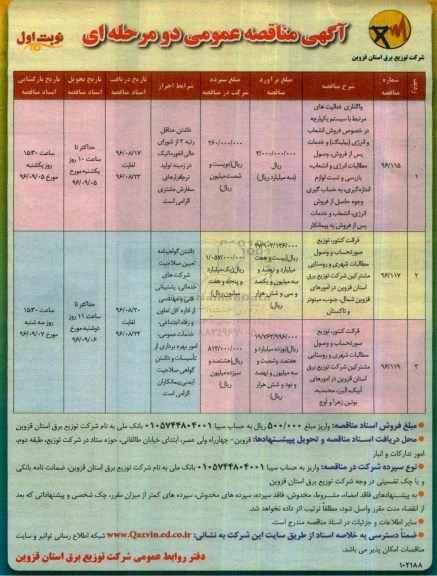 آگهی مناقصه عمومی دو مرحله ای
نوبت اول
شرکت توزیع برق استان قزوین
ردیف
شماره مناقصه
شرح مناقصه
مبلغ برآورد مناقصه
مبلغ سپرده شرکت در مناقصه
شرایط احراز
تاریخ دریافت اسناد مناقصه
تاریخ تحویل اسناد مناقصه
تاریخ بازگشایی اسناد مناقصه
۱
۹۶/۱۱۵
واگذاری فعالیت های
مرتبط با سیستم یکپارچه
در خصوص فروش انشعاب
و انرژی (بیلینگ) و خدمات
پس از فروش، وصول
مطالبات انرژی و انشعاب،
بازرسی و تست لوازم
اندازه گیری، به حساب گیری
وجوه حاصل از فروش
انرژی، انشعاب و خدمات
پس از فروش به پیمانکار
(سه میلیارد ریال)
۲۶۰/۰۰۰/۰۰۰
ریال(دویست و
شصت میلیون
ریال)
داشتن حداقل
رتبه ۲ از شورای
عالی انفورماتیک
در زمینه تولید
نرم افزارهای
سفارش مشتری
الزامی است.
۹۶/۰۸/۱۷
لغایت
۹۶/۰۸/۲۳
حداکثر تا
ساعت ۱۰ روز
یکشنبه مورخ
۹۶/۰۹/۰۵
ساعت ۱۵:۳۰
روز یکشنبه
مورخ ۹۶/۰۹/۰۵
۲
۹۶/۱۱۷
قرائت کنتور، توزیع
صورتحساب و وصول
مطالبات شهری و روستایی
مشترکین شرکت توزیع برق
استان قزوین در امورهای
قزوین شمال، جنوب، مینودر
و تاکستان
ریال(بیست و هفت
میلیارد و نهصد و
سه میلیون و یکصد
و سی و شش هزار
ریال)
۱/۰۵۷/۰۰۰/۰۰۰
ریال(یک میلیارد
و پنجاه و هفت
میلیون ریال)
داشتن گواهینامه
تعیین صلاحیت
شرکت های
خدماتی، پشتیبانی
فنی و مهندسی
از اداره کل تعاون
و رفاه اجتماعی،
خدمات عمومی،
امور بهره برداری از
تأسیسات و داشتن
گواهی صلاحیت
ایمنی پیمانکاران
الزامی است.
۹۶/۰۸/۲۰
لغایت
۹۶/۰۸/۲۴
حداکثر تا
ساعت ۱۱ روز
دوشنبه مورخ
۹۶/۰۹/۰۶
ساعت ۱۵:۳۰
روز سه شنبه
مورخ ۹۶/۰۹/۰۷
۳
۹۶/۱۱۹
قرائت کنتور، توزیع
صورتحساب و وصول
مطالبات شهری و روستایی
مشترکین شرکت توزیع برق
استان قزوین در امورهای
آبیک، البرز، محمدیه،
بوئین زهرا و آوج
۱۹/۷۶۳/۹۹۶/۰۰۰
ریال(نوزده میلیارد و
هفتصد و شصت و
سه میلیون و نهصد
و نود و شش هزار
ریال)
۸۱۳/۰۰۰/۰۰۰
ریال(هشتصد و
سیزده میلیون
ریال)
مبلغ فروش اسناد مناقصه: واریز مبلغ ۵۰۰/۰۰۰ ریال به حساب سیبا ۰۱۰۵۷۴۴۸۰۴۰۰۱ بانک ملی به نام شرکت توزیع برق استان قزوین
محل دریافت اسناد مناقصه و تحویل پیشنهادها: قزوین- چهارراه ولی عصر، ابتدای خیابان طالقانی، حوزه ستاد در شرکت توزیع، طبقه دوم،
امور تدارکات و انبار
نوع سپرده شرکت در مناقصه: واریز به حساب سیبا ۰۱۰۵۷۴۴۸۰۴۰۰۱ بانک ملی به نام شرکت توزیع برق استان قزوین، ضمانت نامه بانکی
و یا چک تضمینی در وجه شرکت توزیع برق استان قزوین
به پیشنهادهای فاقد امضاء، مشروط، مخدوش، فاقد سپرده، سپرده های مخدوش، سپرده های کمتر از میزان مقرر، چک شخصی و پیشنهاداتی که بعد از
انقضاء مدت مقرر واصل شود، مطلقاً ترتیب اثر داده نخواهد شد.
سایر اطلاعات و جزئیات در اسناد مناقصه مندرج است.
ضمناً دسترسی به خلاصه اسناد از طریق سایت این شرکت به نشانی: www.Qazvin.ed.co.ir شبکه اطلاع رسانی توانیر و سایت
مناقصات امکان پذیر می باشد.
دفتر روابط عمومی شرکت توزیع برق استان قزوین
۱۰۲۱۸۸